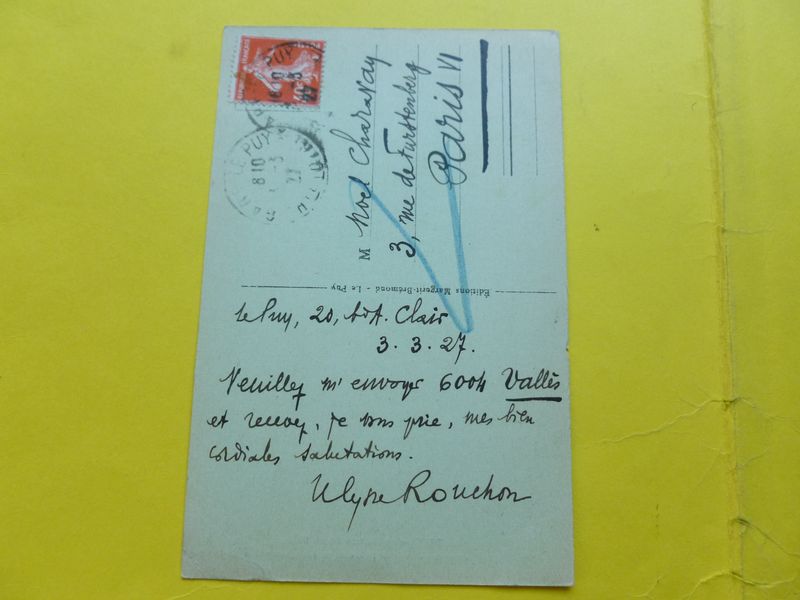 M Noel Charavay
3, rue de Furstenberg
Paris VI
Éditions Margerit-Brémond - Le Puy
Le Puy, 20, Bd A. Clair
3. 3. 27.
Veuillez m'envoyer 6004 Vallès
et recevez, je vous prie, mes bien
cordiales salutations.
Ulysse Rouchon
LE PUY
8 10
3
27